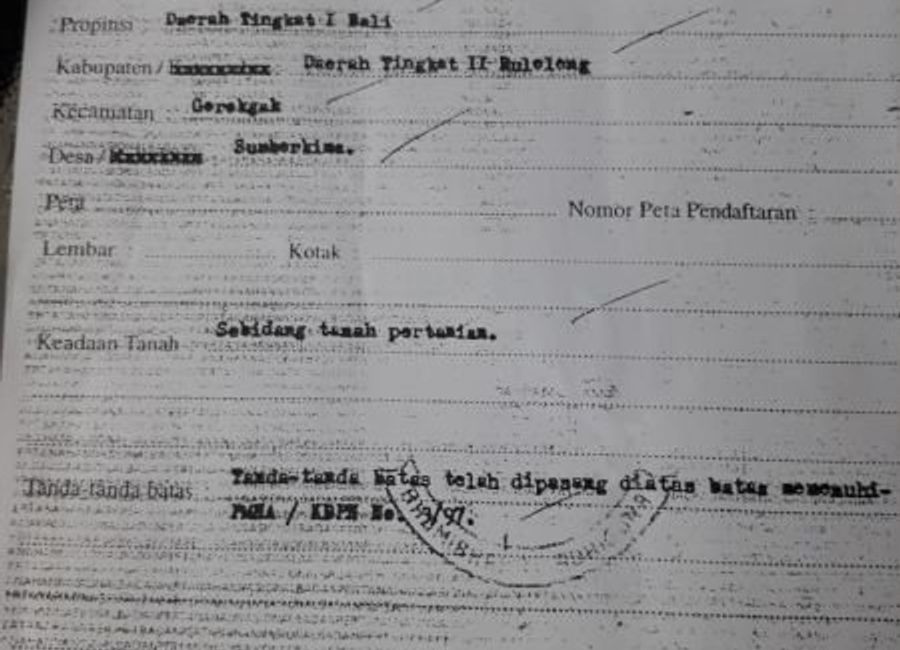 Propinsi : Daerah Tingkat I Bali
Kabupaten / xxxxxxxxx : Daerah Tingkat II Buleleng
Kecamatan Gerokgak
Desa / xxxxxxxx Sumberkima.
Peta Nomor Peta Pendaftaran :
Lembar : Kotak
Keadaan Tanah Sebidang tanah pertanian.
Tanda-tanda batas : Tanda-tanda batas telah dipasang diatas batas memenuhi-
PMNA / KBPN No.